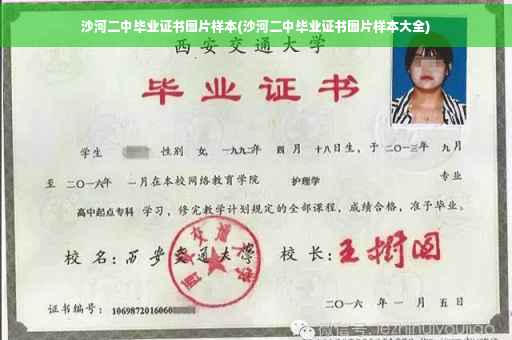 沙河二中毕业证书图片样本(沙河二中毕业证书图片样本大全)
西安交通大学
毕业证书
学生 性别 女, 一九九二年 四月 十八日生, 于 二〇一三年 九月
至 二〇一六年 一月在本校网络教育学院 护理学 专业
高中起点专科 学习, 修完教学计划规定的全部课程, 成绩合格, 准予毕业。
校名: 西安交通大学 校长: 王树国
西安交通大学
证书编号: 1069872016060
二〇一六年 一月 五日
微信号: jezhihuiyoujiao